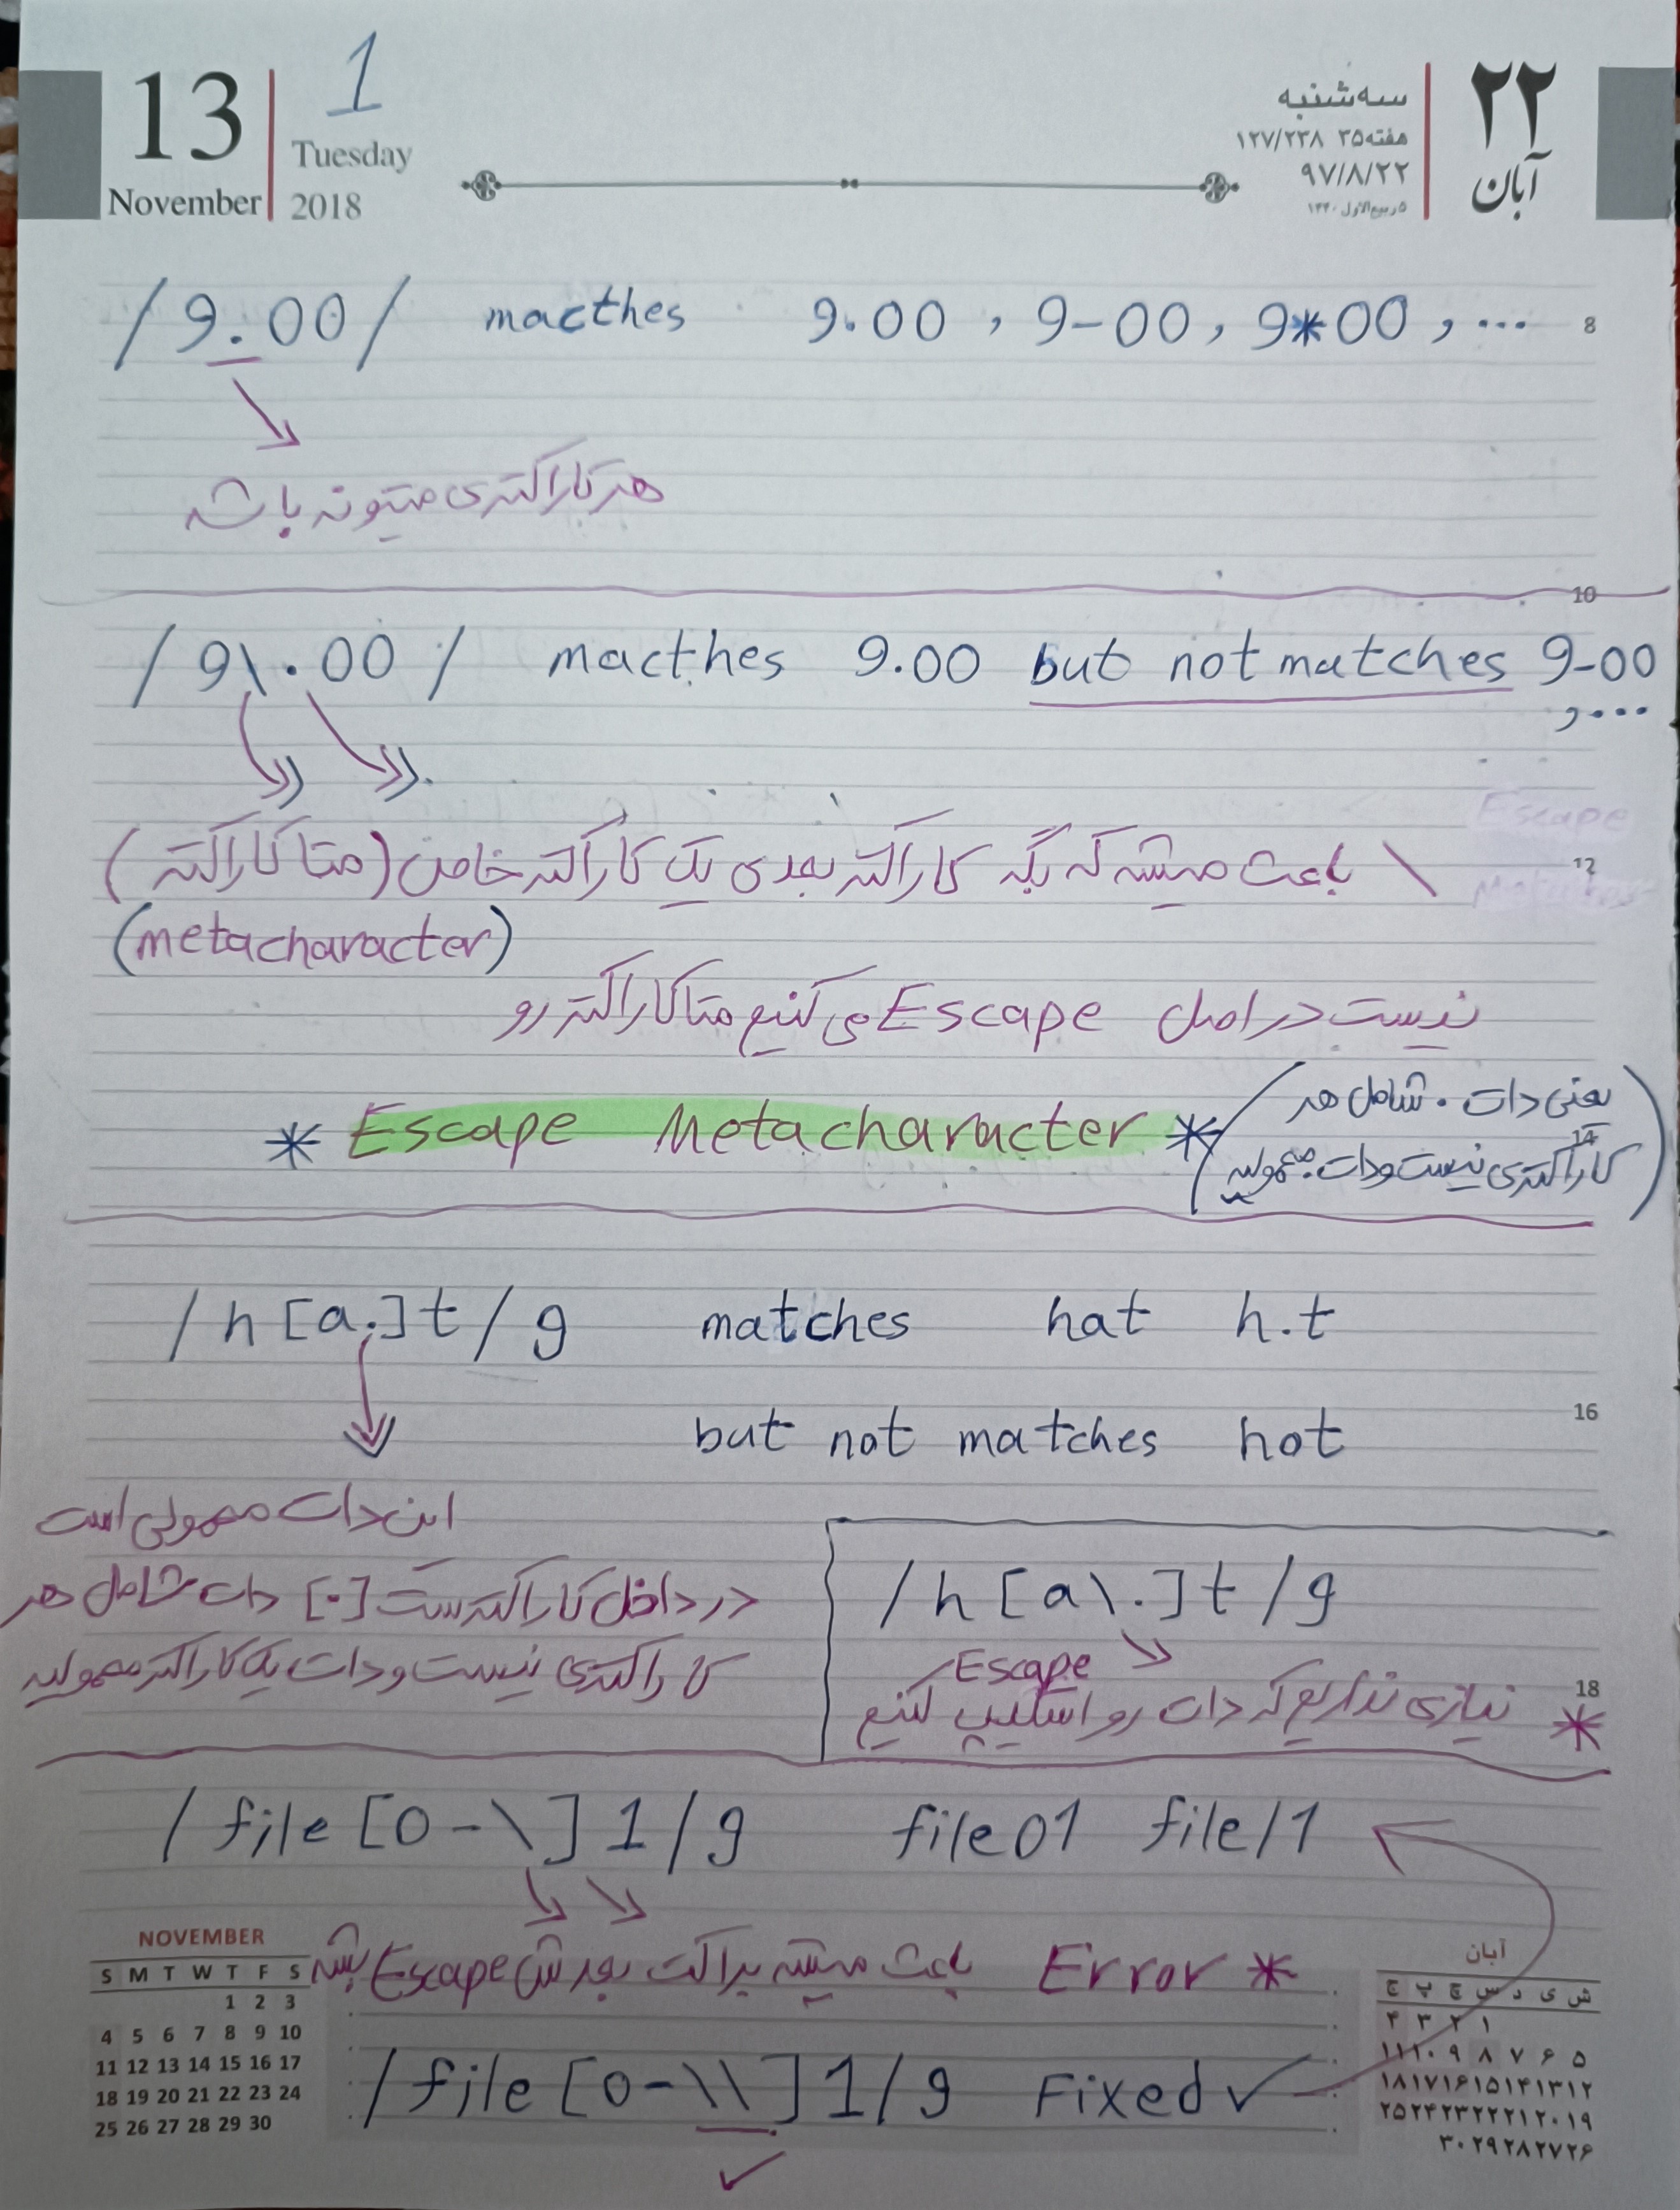 13
November
1
Tuesday
2018
سه‌شنبه
هفته ۳۵ ۱۲۷/۲۳۸
۹۷/۸/۲۲
۵ ربیع‌الاول ۱۴۴۰
۲۲
آبان
/9.00/ macthes 9.00 , 9-00, 9*00, ...
8
هر کاراکتری میتونه باشه
10
/9\.00/ macthes 9.00 but not matches 9-00
, ...
\ باعث میشه که بگه کاراکتر بعدی یک کاراکتر خاص (متا کاراکتر)
12
(metacharacter)
نیست در اصل Escape می کنیم متا کاراکتر رو
* Escape Metacharacter *
(یعنی دات . شامل هر
14
کاراکتری نیست و دات معمولیه)
/h[a.]t/g matches hat h.t
but not matches hot
16
این دات معمولی است
در داخل کاراکترست [.] دات شامل هر
کاراکتری نیست و دات یه کاراکتر معمولیه
/h[a\.]t/g
Escape
18
* نیازی نداریم که دات رو اسکیپ کنیم
/file[0-\]1/g file01 file/1
* Error باعث میشه براکت بعدش Escape بشه
/file[0-\\]1/g Fixed ✓
✓
NOVEMBER
S M T W T F S
1 2 3
4 5 6 7 8 9 10
11 12 13 14 15 16 17
18 19 20 21 22 23 24
25 26 27 28 29 30
آبان
ش ی د س چ پ ج
۱ ۲ ۳ ۴
۵ ۶ ۷ ۸ ۹ ۱۰ ۱۱
۱۲ ۱۳ ۱۴ ۱۵ ۱۶ ۱۷ ۱۸
۱۹ ۲۰ ۲۱ ۲۲ ۲۳ ۲۴ ۲۵
۲۶ ۲۷ ۲۸ ۲۹ ۳۰